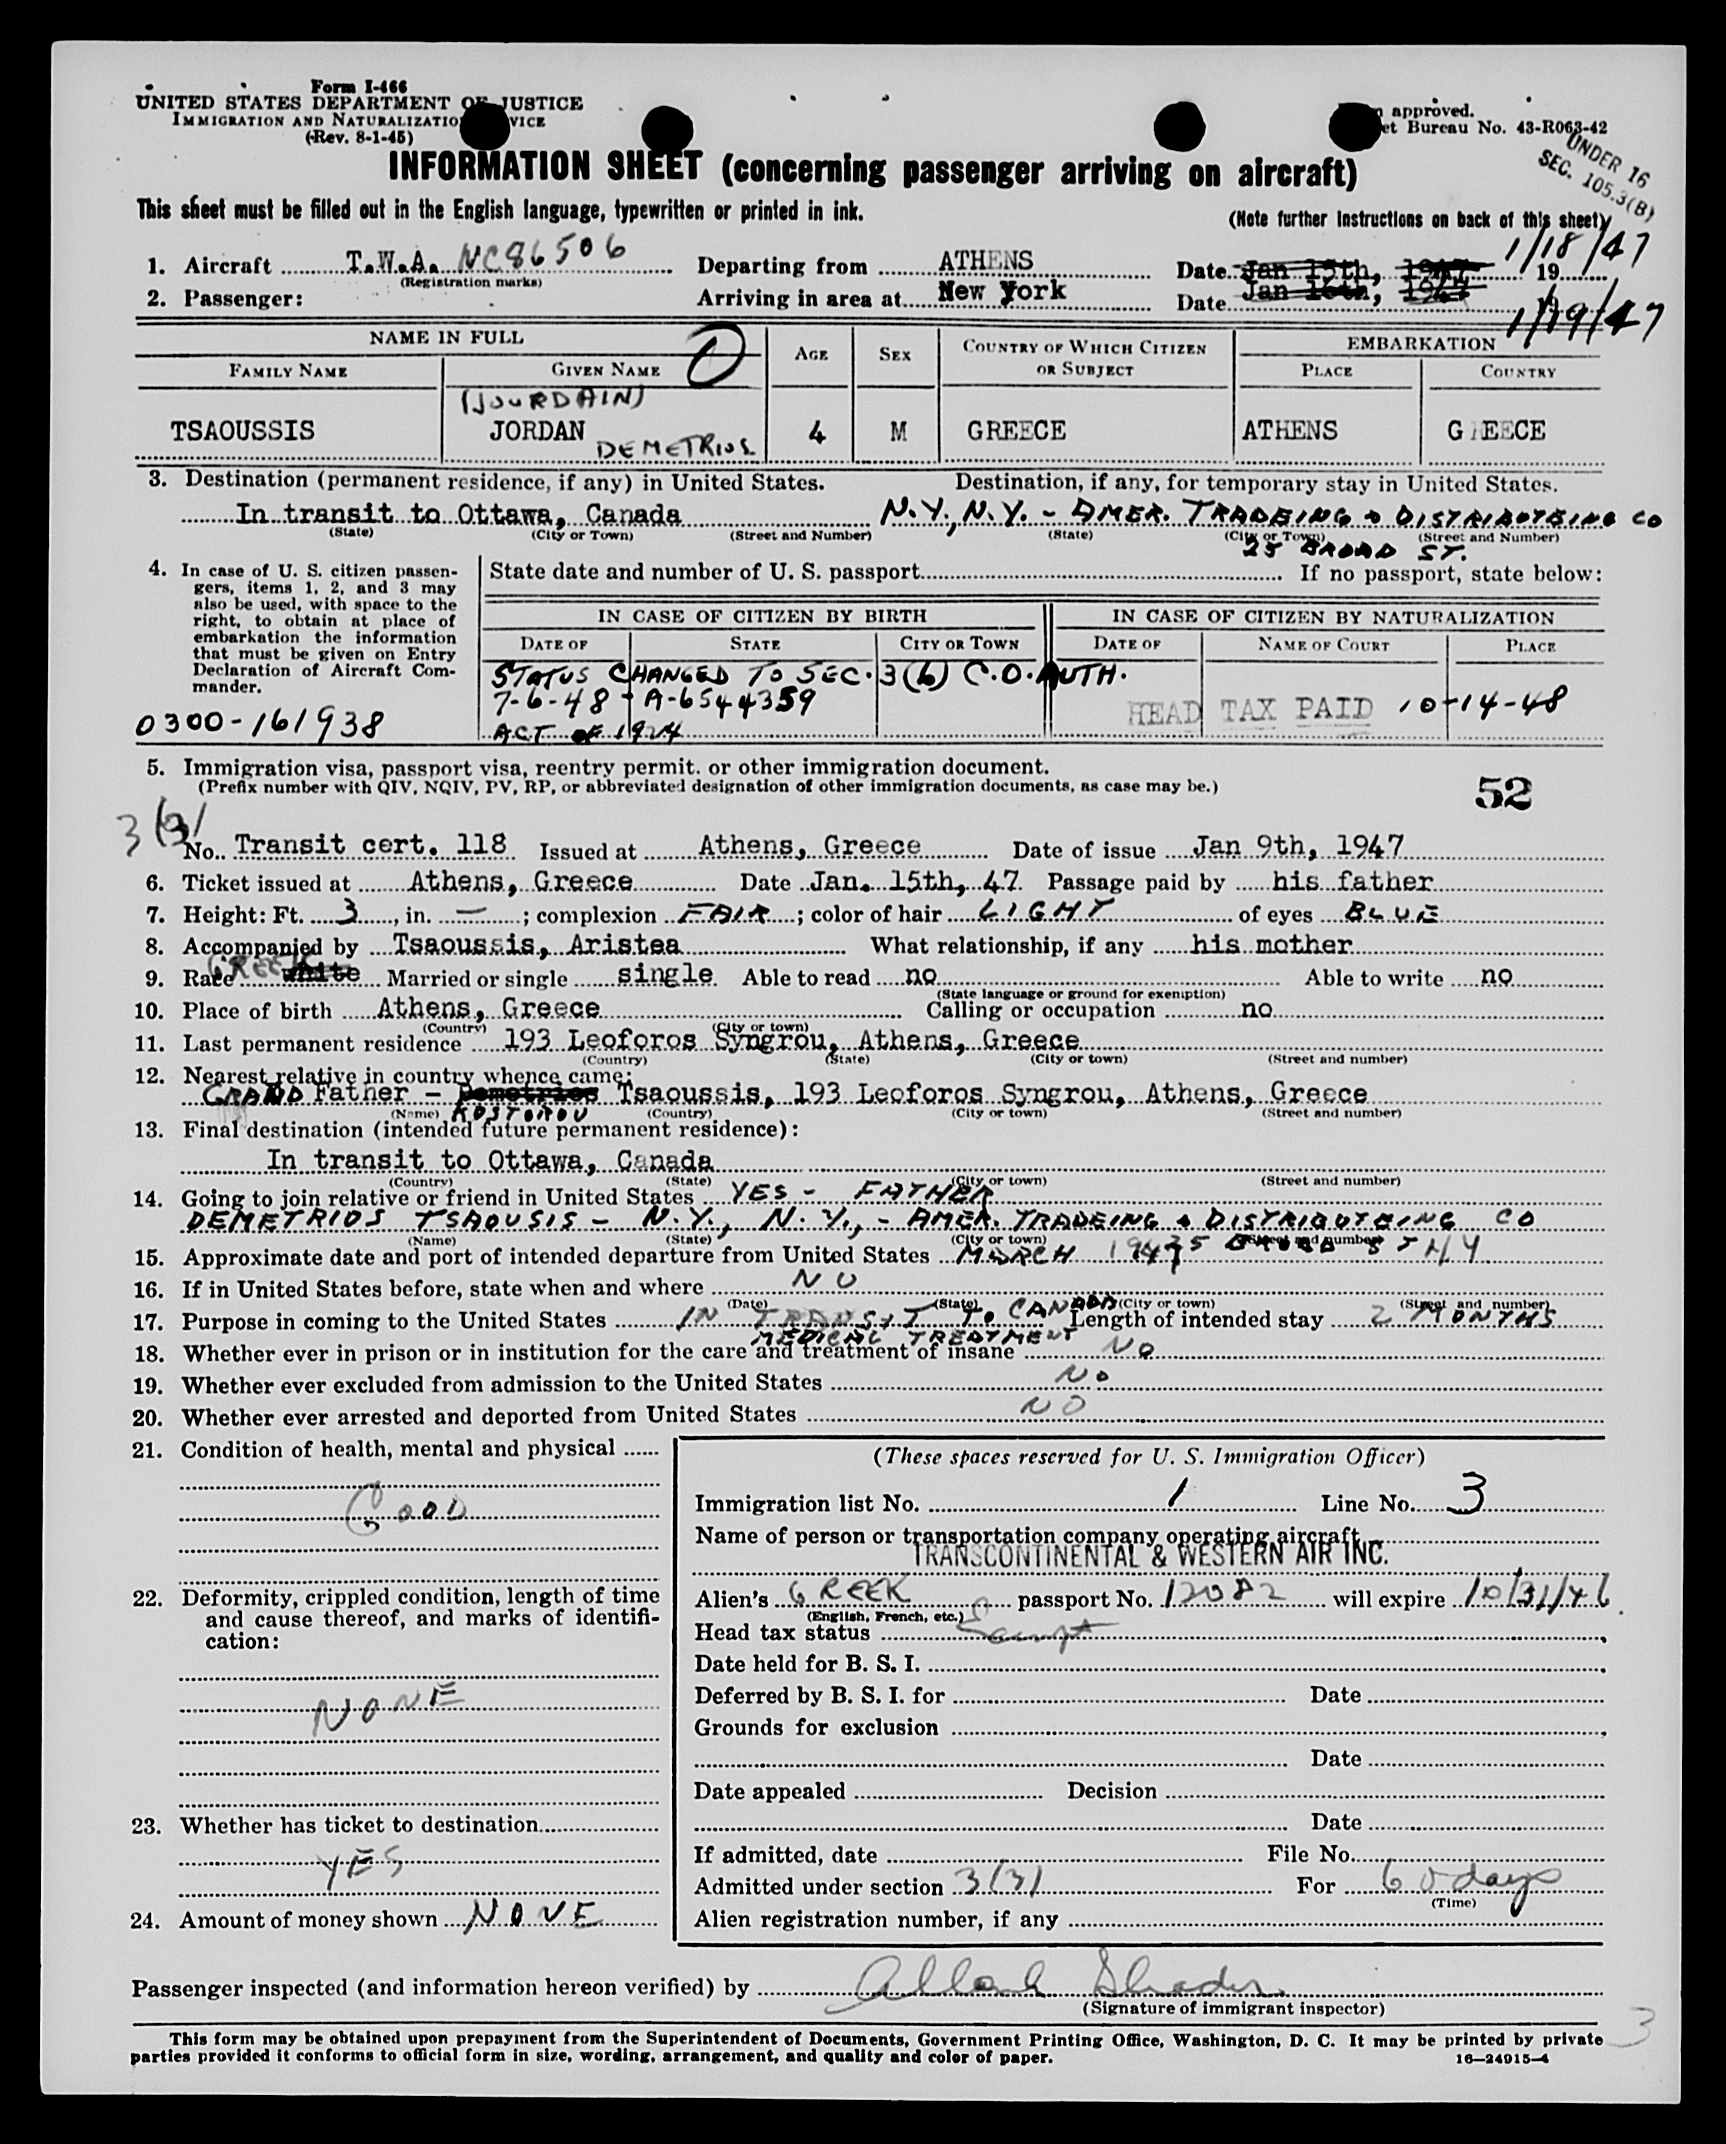 Form I-466
UNITED STATES DEPARTMENT OF JUSTICE
IMMIGRATION AND NATURALIZATION SERVICE
(Rev. 8-1-45)
approved.
et Bureau No. 43-R063-42
UNDER 16
SEC. 105.3(B)
INFORMATION SHEET (concerning passenger arriving on aircraft)
This sheet must be filled out in the English language, typewritten or printed in ink.
(Note further instructions on back of this sheet)
1. Aircraft T.W.A. NC86506 Departing from ATHENS Date Jan 15th, 1947 19 1/18/47
(Registration marks)
2. Passenger: Arriving in area at New York Date Jan 16th, 1947 19 1/19/47
NAME IN FULL AGE SEX COUNTRY OF WHICH CITIZEN OR SUBJECT EMBARKATION
FAMILY NAME GIVEN NAME PLACE COUNTRY
(JOURDAIN)
TSAOUSSIS JORDAN 4 M GREECE ATHENS GREECE
DEMETRIOS
3. Destination (permanent residence, if any) in United States. Destination, if any, for temporary stay in United States.
In transit to Ottawa, Canada N.Y., N.Y. - AMER. TRADEING & DISTRIBUTEING CO
(State) (City or Town) (Street and Number) (State) (City or Town) (Street and Number)
25 BROAD ST.
4. In case of U. S. citizen passengers, items 1, 2, and 3 may also be used, with space to the right, to obtain at place of embarkation the information that must be given on Entry Declaration of Aircraft Commander.
State date and number of U. S. passport If no passport, state below:
IN CASE OF CITIZEN BY BIRTH IN CASE OF CITIZEN BY NATURALIZATION
DATE OF STATE CITY OR TOWN DATE OF NAME OF COURT PLACE
STATUS CHANGED TO SEC. 3(6) C.O. AUTH.
7-6-48 - A-6544359
HEAD TAX PAID 10-14-48
ACT OF 1924
0300-161938
5. Immigration visa, passport visa, reentry permit. or other immigration document.
(Prefix number with QIV, NQIV, PV, RP, or abbreviated designation of other immigration documents, as case may be.)
52
3(3)
No. Transit cert. 118 Issued at Athens, Greece Date of issue Jan 9th, 1947
6. Ticket issued at Athens, Greece Date Jan. 15th, 47 Passage paid by his father
7. Height: Ft. 3, in. —; complexion FAIR; color of hair LIGHT of eyes BLUE
8. Accompanied by Tsaoussis, Aristea What relationship, if any his mother
9. Race GREEK white Married or single single Able to read no Able to write no
(State language or ground for exemption)
10. Place of birth Athens, Greece Calling or occupation no
(Country) (City or town)
11. Last permanent residence 193 Leoforos Syngrou, Athens, Greece
(Country) (State) (City or town) (Street and number)
12. Nearest relative in country whence came:
GRAND Father - Demetrios Tsaoussis, 193 Leoforos Syngrou, Athens, Greece
(Name) (Country) (City or town) (Street and number)
13. Final destination (intended future permanent residence):
In transit to Ottawa, Canada
(Country) (State) (City or town) (Street and number)
14. Going to join relative or friend in United States YES - FATHER
DEMETRIOS TSAOUSIS - N.Y., N.Y., - AMER. TRADEING & DISTRIBUTEING CO
(Name) (State) (City or town) (Street and number)
25 BROAD ST NY
15. Approximate date and port of intended departure from United States MARCH 1947
16. If in United States before, state when and where NO
(Date) (State) (City or town) (Street and number)
17. Purpose in coming to the United States IN TRANSIT TO CANADA Length of intended stay 2 MONTHS
MEDICAL TREATMENT
18. Whether ever in prison or in institution for the care and treatment of insane NO
19. Whether ever excluded from admission to the United States NO
20. Whether ever arrested and deported from United States NO
21. Condition of health, mental and physical
GOOD
22. Deformity, crippled condition, length of time and cause thereof, and marks of identification:
NONE
23. Whether has ticket to destination
YES
24. Amount of money shown NONE
(These spaces reserved for U. S. Immigration Officer)
Immigration list No. 1 Line No. 3
Name of person or transportation company operating aircraft
TRANSCONTINENTAL & WESTERN AIR INC.
Alien's GREEK passport No. 12082 will expire 10/31/46.
(English, French, etc.)
Head tax status
Date held for B. S. I.
Deferred by B. S. I. for Date
Grounds for exclusion
Date
Date appealed Decision
Date
If admitted, date File No.
Admitted under section 3(3) For 60 days
(Time)
Alien registration number, if any
Passenger inspected (and information hereon verified) by
(Signature of immigrant inspector)
3
This form may be obtained upon prepayment from the Superintendent of Documents, Government Printing Office, Washington, D. C. It may be printed by private
parties provided it conforms to official form in size, wording, arrangement, and quality and color of paper.
16—24915-4